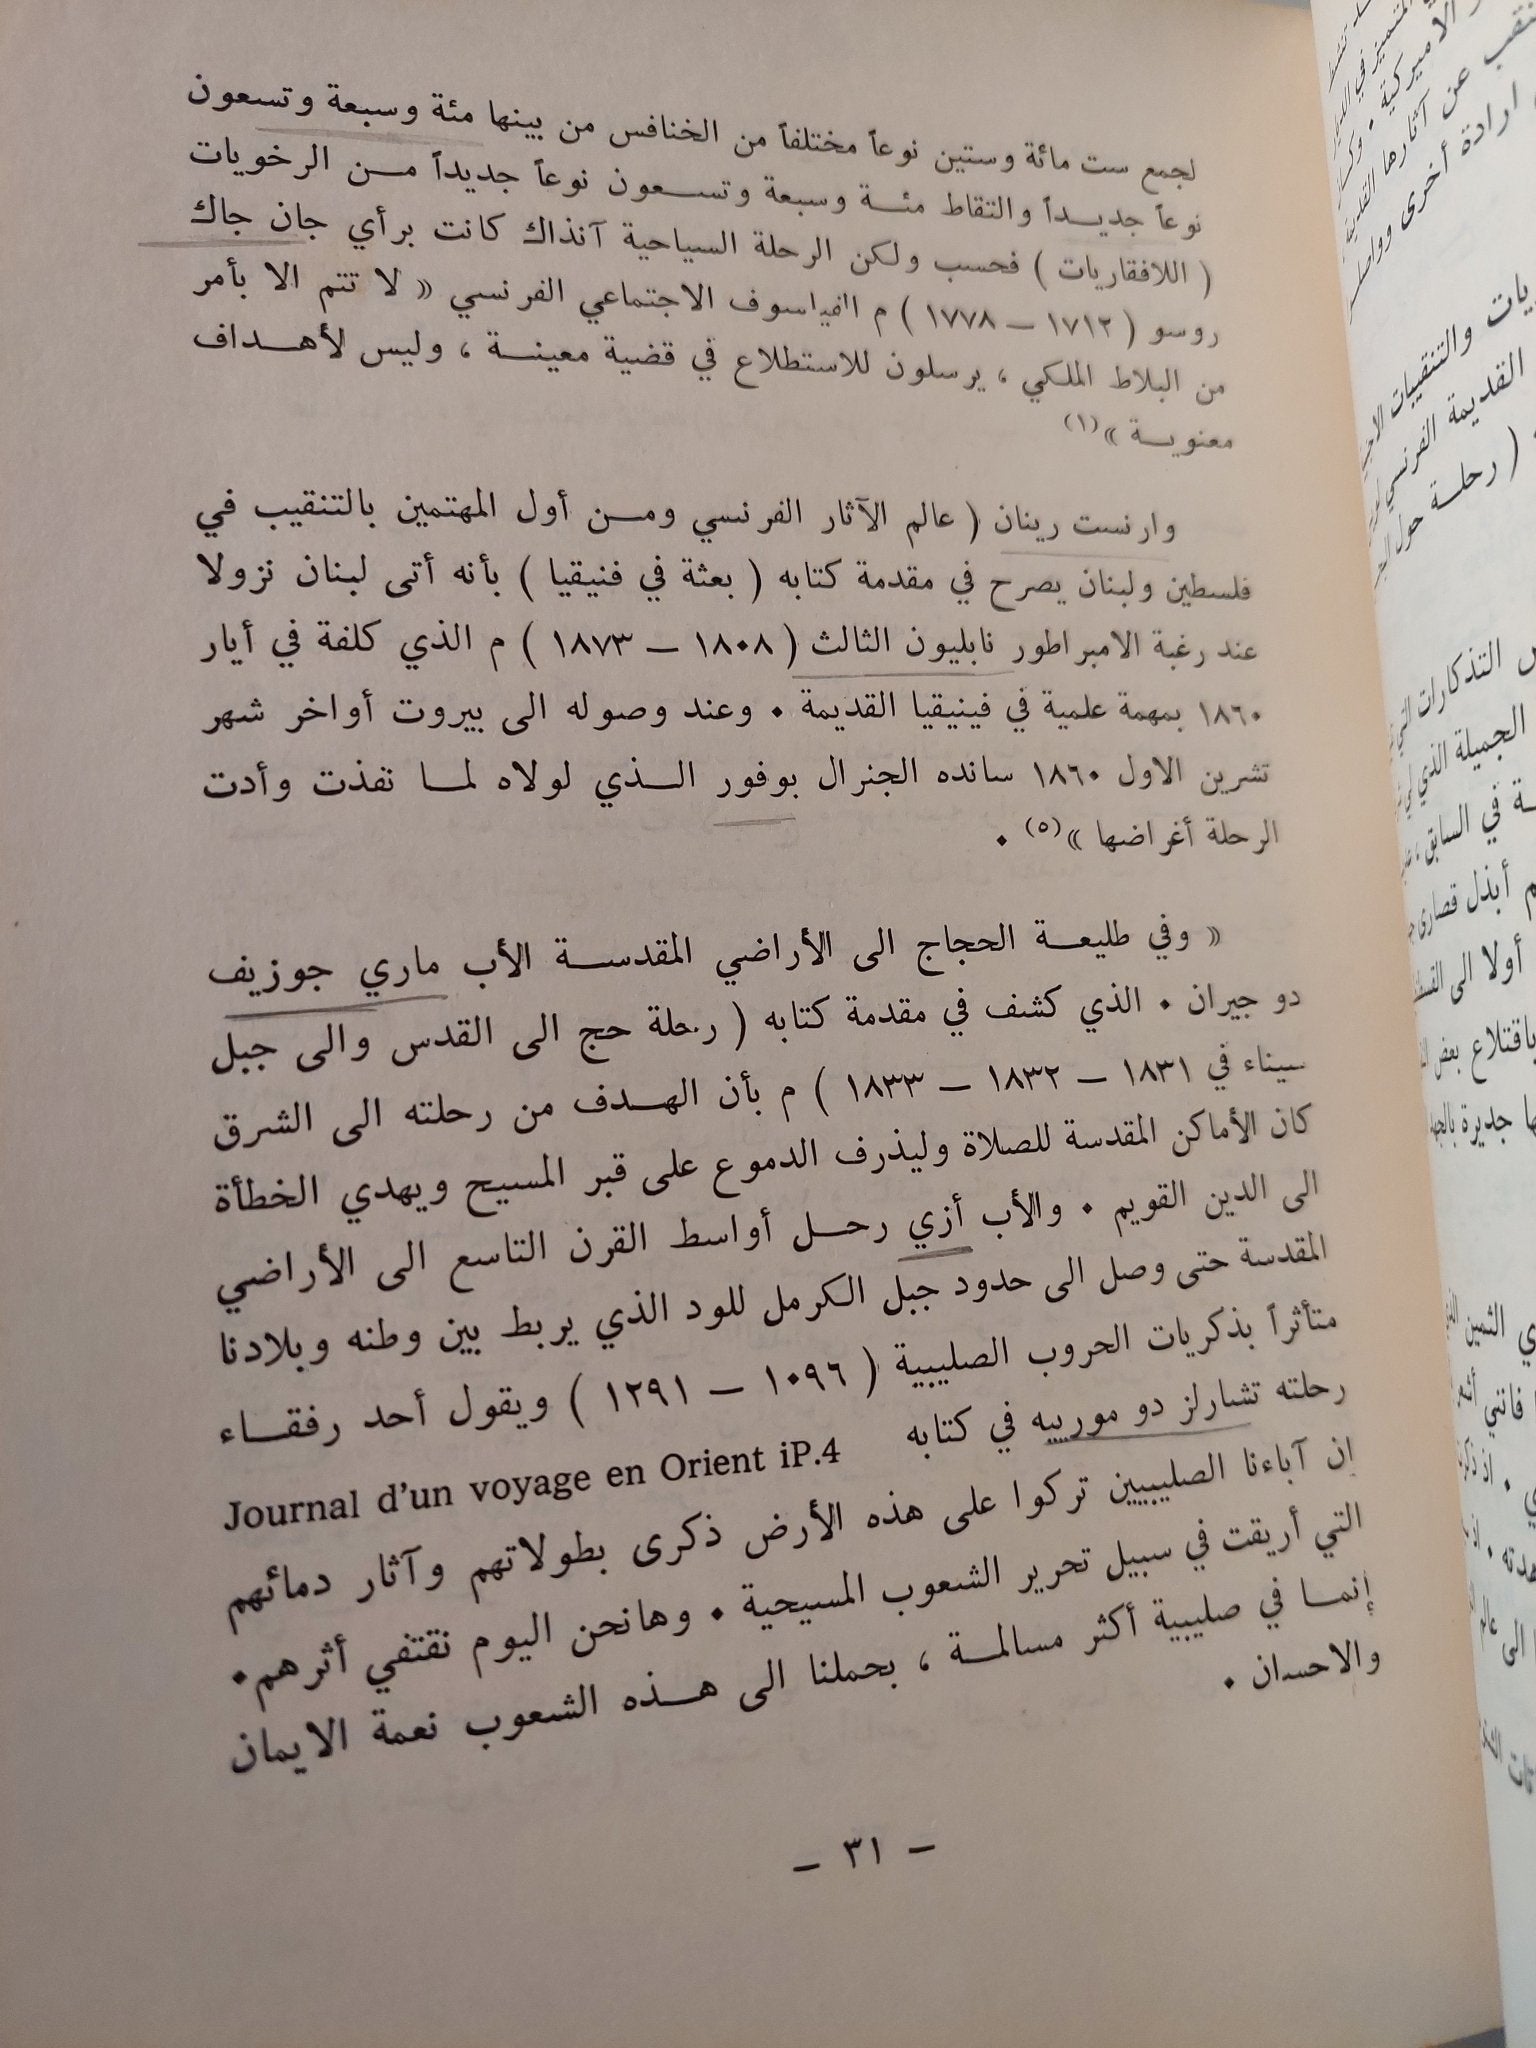 لجمع ست مائة وستين نوعاً مختلفاً من الخنافس من بينها مئة وسبعة وتسعون
نوعاً جديـداً والتقاط مئـة وسبعة وتسـعون نوعاً جديداً مـن الرخويات
( اللافقاريات ) فحسب ولكن الرحلة السياحية آنذاك كانت برأي جان جاك
روسو ( ١٧١٢ — ١٧٧٨ ) م الفياسوف الاجتماعي الفرنسي « لا تتم الا بأمر
من البلاط الملكي ، يرسلون للاستطلاع في قضية معينـة ، وليس لأهـداف
معنويـة »(١)
وارنست رينان ( عالم الآثار الفرنسي ومـن أول المهتمين بالتنقيب في
فلسطين ولبنان يصرح في مقدمة كتابه ( بعثة في فنيقيا ) بأنه أتى لبنان نزولا
عند رغبة الامبراطور نابليون الثالث ( ١٨٠٨ — ١٨٧٣ ) م الذي كلفة في أيار
١٨٦٠ بمهمة علمية في فينيقيا القديمة ٠ وعند وصوله الى بيروت أواخر شهر
تشرين الاول ١٨٦٠ سانده الجنرال بوفور الـذي لولاه لمـا نفذت وأدت
الرحلة أغراضها »(٥) ٠
« وفي طليعـة الحجاج الى الأراضي المقدسـة الأب ماري جوزيف
دو جيران ٠ الذي كشف في مقدمة كتابه ( رحلة حج الى القدس والى جبل
سيناء في ١٨٣١ — ١٨٣٢ — ١٨٣٣ ) م بأن الهـدف من رحلته الى الشرق
كان الأماكن المقدسة للصلاة وليذرف الدموع على قبر المسيح ويهدي الخطأة
الى الدين القويم ٠ والأب أزي رحـل أواسط القرن التاسع الى الأراضي
المقدسة حتى وصل الى حدود جبل الكرمل للود الذي يربط بين وطنه وبلادنا
متأثراً بذكريات الحروب الصليبية ( ١٠٩٦ — ١٢٩١ ) ويقول أحد رفقـاء
رحلته تشارلز دو مورييه في كتابه Journal d’un voyage en Orient iP.4
إن آباءنا الصليبيين تركوا على هذه الأرض ذكرى بطولاتهم وآثار دمائهم
التي أريقت في سبيل تحرير الشعوب المسيحية ٠ وهانحن اليوم نقتفي أثرهم٠
إنمـا في صليبية أكثر مسالمـة ، بحملنا الى هـذه الشعوب نعمة الايمان
والاحسان ٠
— ٣١ —